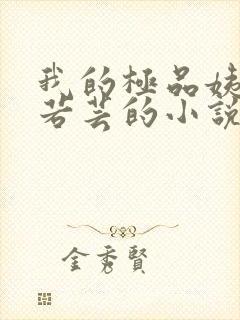 我的極品姨
若芸的小說
金秀賢